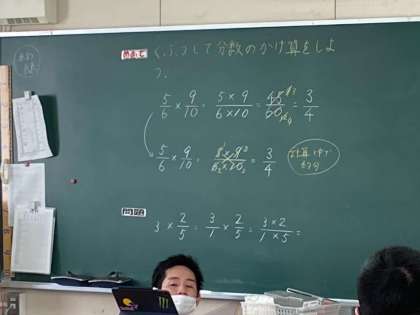 めあて くふうして分数のかけ算をしよ
う。
5/6 × 9/10 = 5×9/6×10 = 45/60 = 3/4
5/6 × 9/10 = 5×9/6×10 = 3/4
計算
問題
3 × 2/5 = 3/1 × 2/5 = 3×2/1×5 =